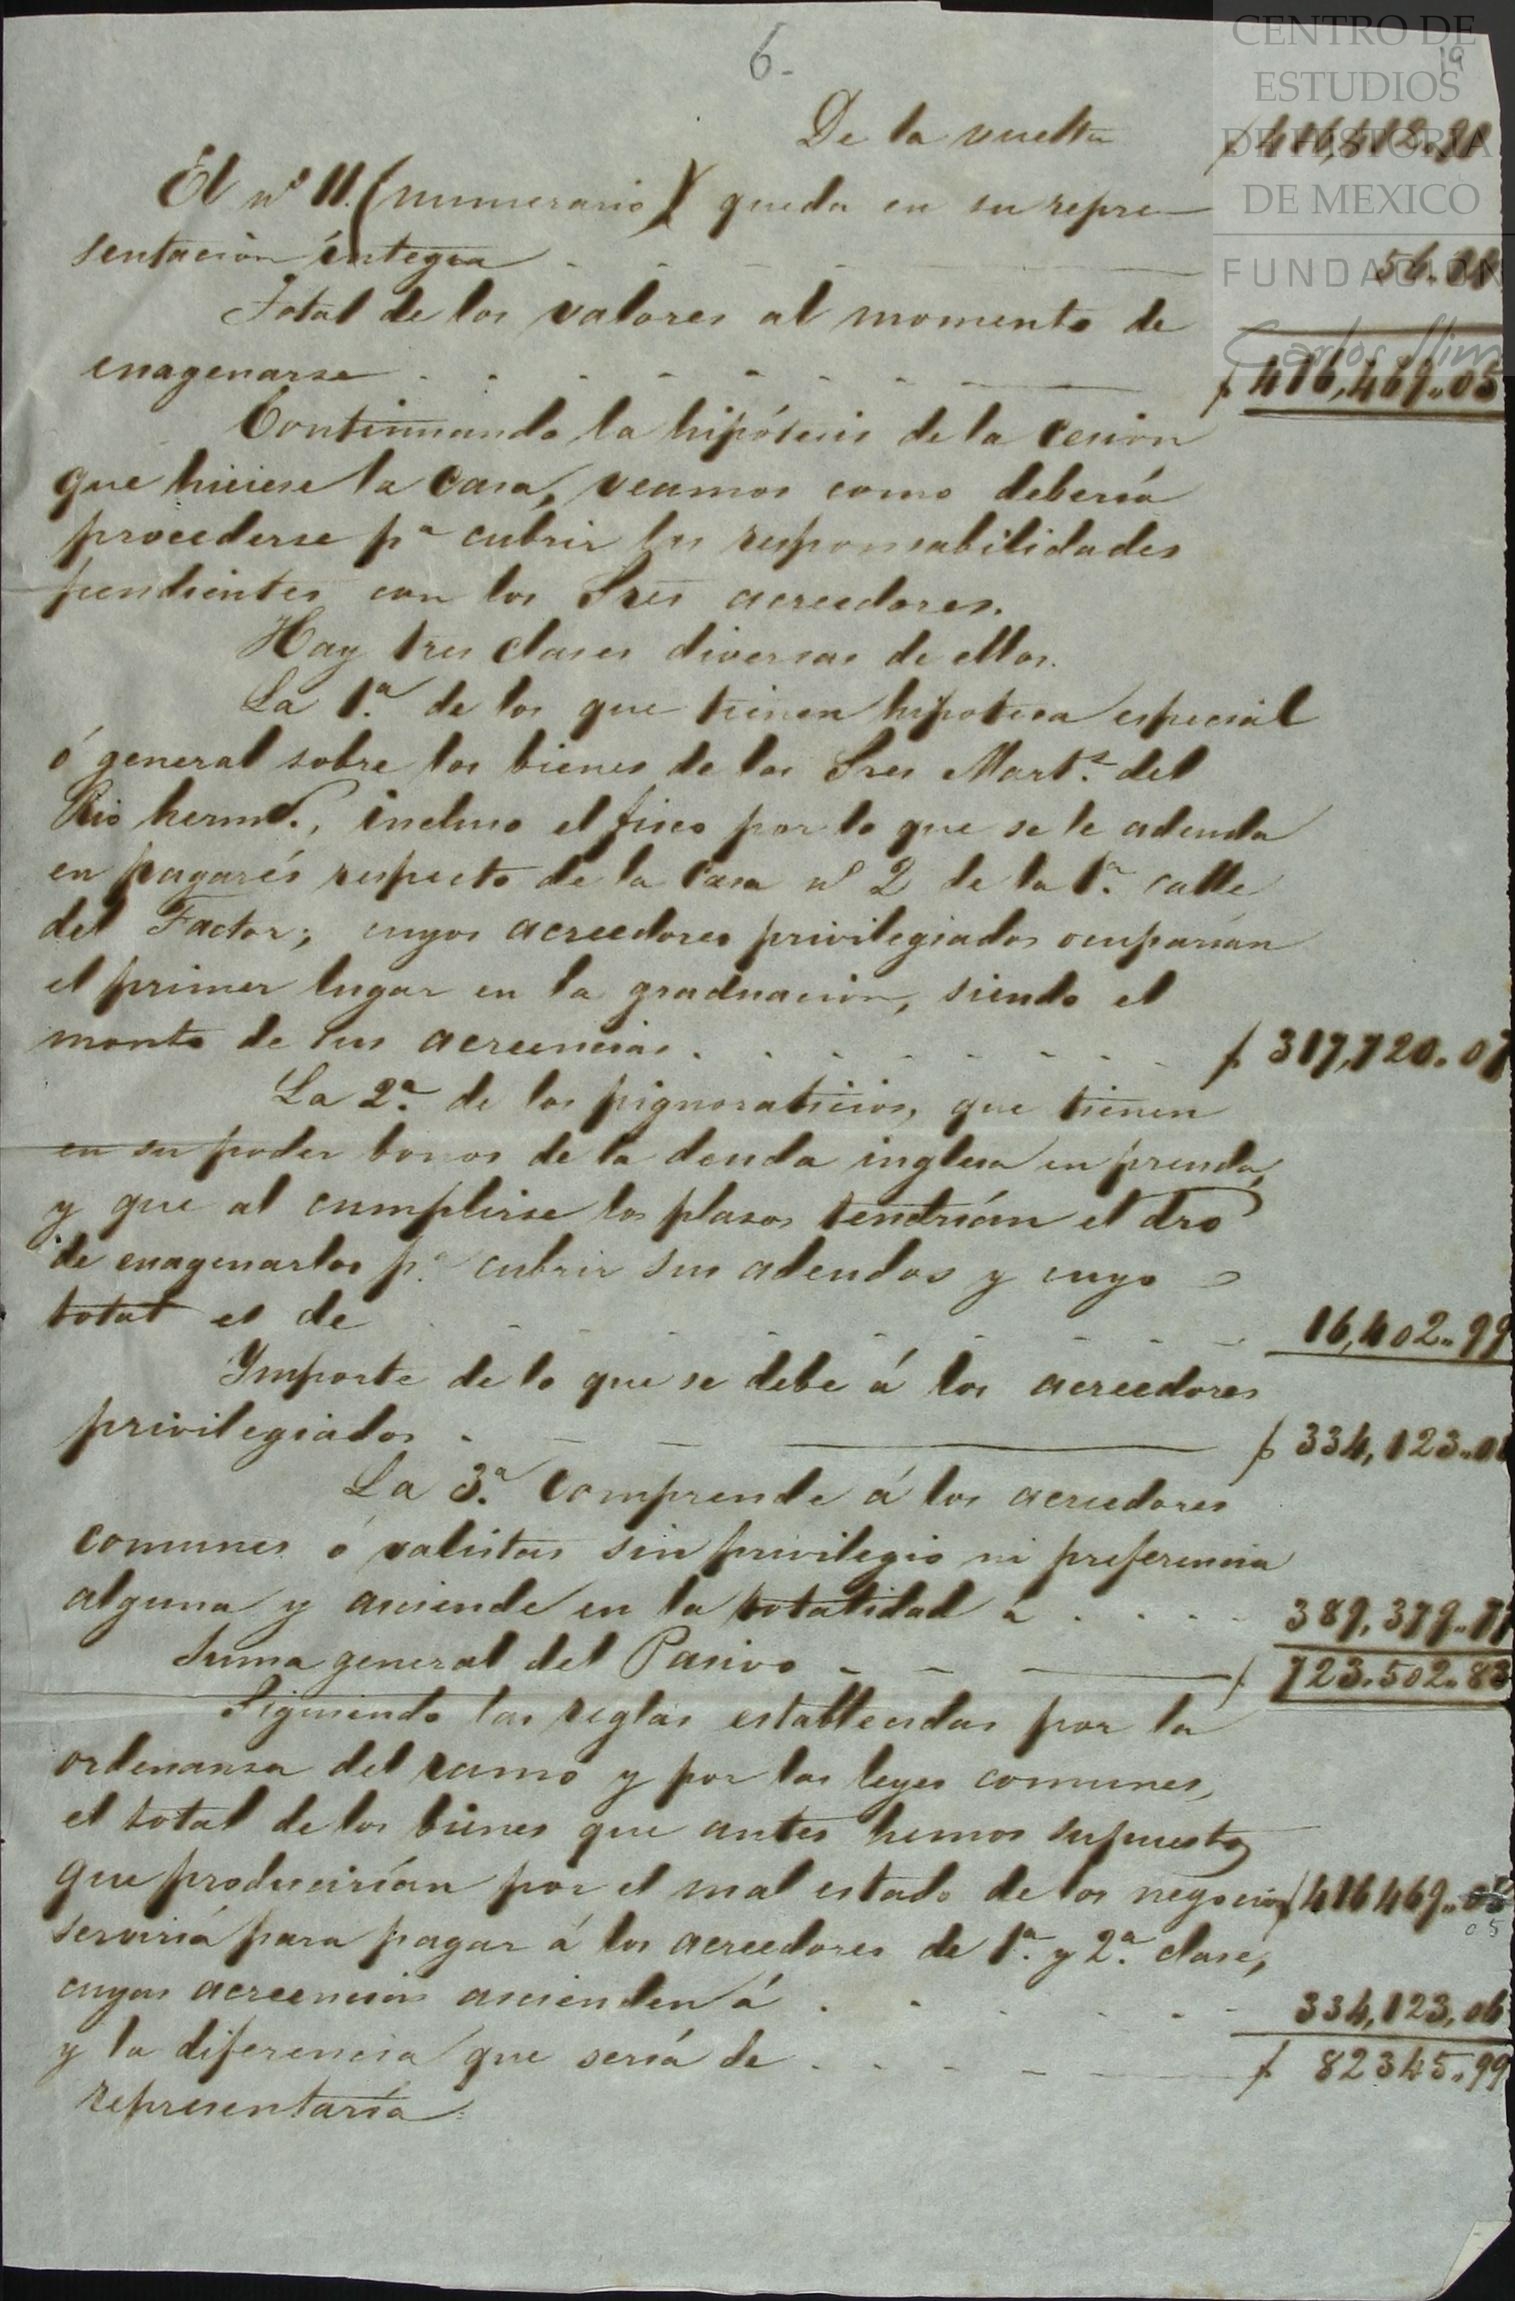 6.-
19
CENTRO DE
ESTUDIOS
DE HISTORIA
DE MEXICO
FUNDACIÓN
Carlos Slim
De la vuelta
El nº 11. (numerario) queda en su repre-
sentación íntegra
Total de los valores al momento de
enagenarse $ 416,469.05
Continuando la hipótesis de la cesion
que hiciese la Casa, veamos como debería
procederse pª cubrir las responsabilidades
pendientes con los Sres acreedores.
Hay tres clases diversas de ellos.
La 1ª. de los que tienen hipoteca especial
ó general sobre los bienes de los Sres Martz. del
Rio hermos., incluso el fisco por lo que se le adeuda
en pagarés respecto de la Casa nº 2 de la 1ª. calle
del Factor; cuyos acreedores privilegiados ocuparían
el primer lugar en la graduacion, siendo el
monto de sus acreencias $ 317,720.07
La 2ª. de los pignoraticios, que tienen
en su poder bonos de la deuda inglesa en prenda,
y que al cumplirse los plasos tendrían el dro
de enagenarlos pª. cubrir sus adeudos y cuyo
total es de 16,402.99
Importe de lo que se debe á los acreedores
privilegiados $ 334,123.06
La 3ª. comprende á los acreedores
comunes ó valistas sin privilegio ni preferencia
alguna y asciende en la totalidad á 389,379.77
Suma general del Pasivo $ 723.502.83
Siguiendo las reglas establecidas por la
ordenansa del ramo y por las leyes comunes,
el total de los bienes que antes hemos supuesto
que producirían por el mal estado de los negocios $ 416469.05
05
serviría para pagar á los acreedores de 1ª. y 2ª. clase,
cuyas acreencias ascienden á 334,123.06
y la diferencia que sería de $ 82345.99
representaría